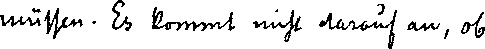 müssen. Es kommt nicht darauf an, ob